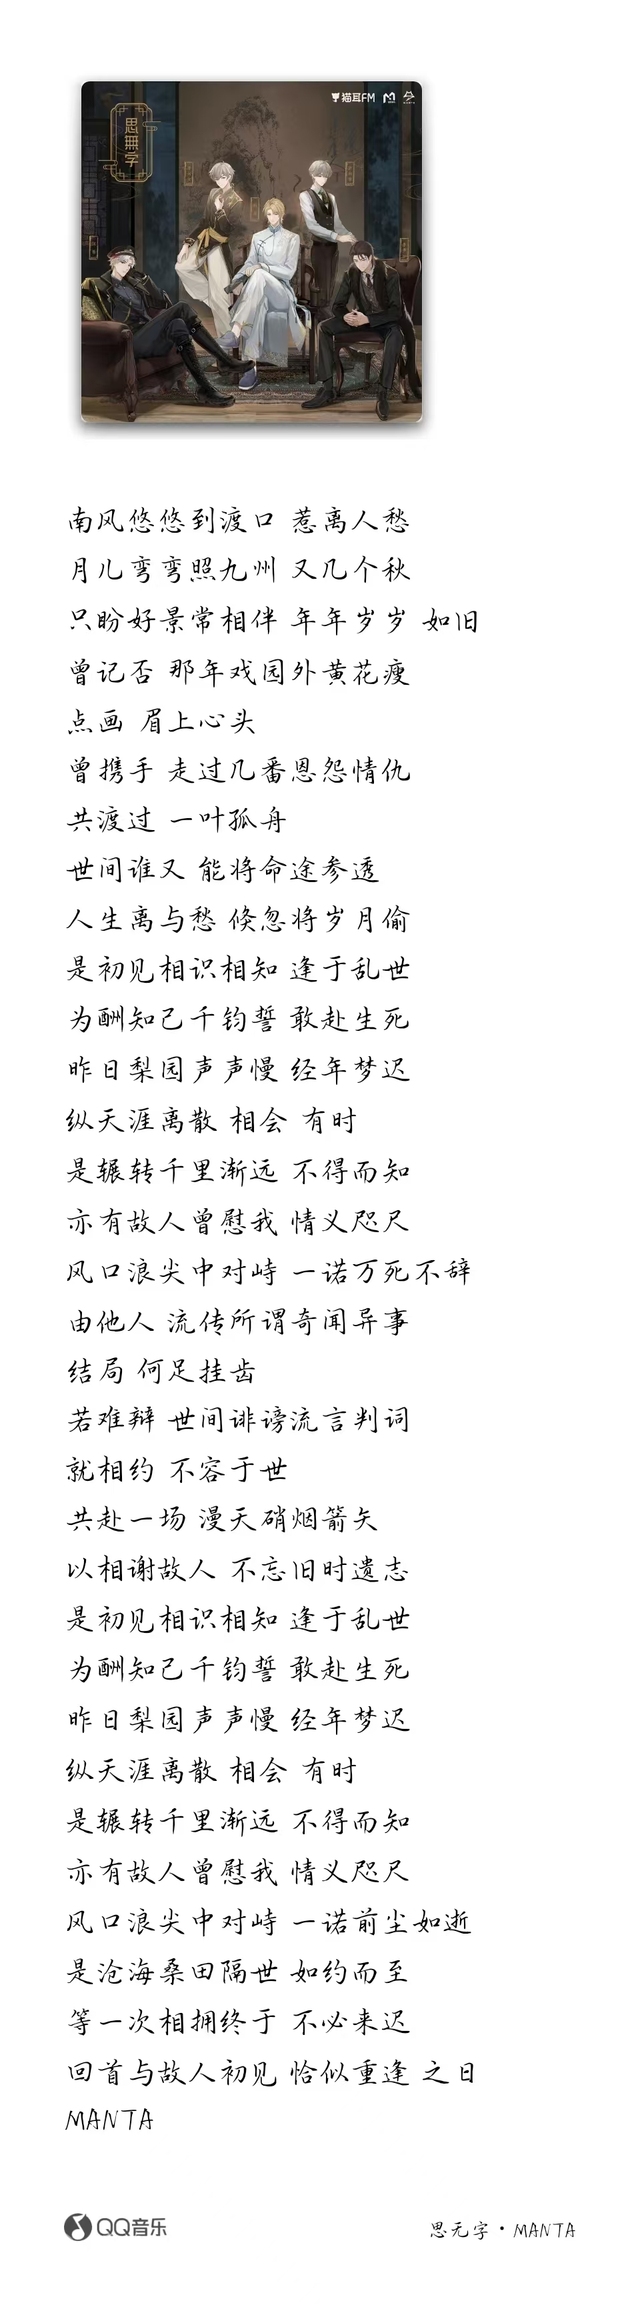 思無字
猫耳FM
南风悠悠到渡口 惹离人愁
月儿弯弯照九州 又几个秋
只盼好景常相伴 年年岁岁 如旧
曾记否 那年戏园外黄花瘦
点画 眉上心头
曾携手 走过几番恩怨情仇
共渡过 一叶孤舟
世间谁又 能将命途参透
人生离与愁 倏忽将岁月偷
是初见相识相知 逢于乱世
为酬知己千钧誓 敢赴生死
昨日梨园声声慢 经年梦迟
纵天涯离散 相会 有时
是辗转千里渐远 不得而知
亦有故人曾慰我 情义咫尺
风口浪尖中对峙 一诺万死不辞
由他人 流传所谓奇闻异事
结局 何足挂齿
若难辩 世间诽谤流言判词
就相约 不容于世
共赴一场 漫天硝烟箭矢
以相谢故人 不忘旧时遗志
是初见相识相知 逢于乱世
为酬知己千钧誓 敢赴生死
昨日梨园声声慢 经年梦迟
纵天涯离散 相会 有时
是辗转千里渐远 不得而知
亦有故人曾慰我 情义咫尺
风口浪尖中对峙 一诺前尘如逝
是沧海桑田隔世 如约而至
等一次相拥终于 不必来迟
回首与故人初见 恰似重逢 之日
MANTA
QQ音乐
思无字·MANTA